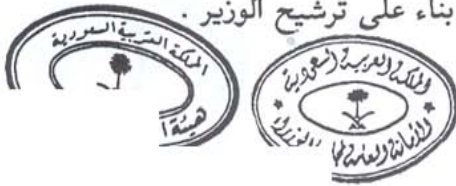 بناء على ترشيح الوزير .
المملكة العربية السعودية
هيئة
المملكة العربية السعودية
الأمانة العامة
الوزراء